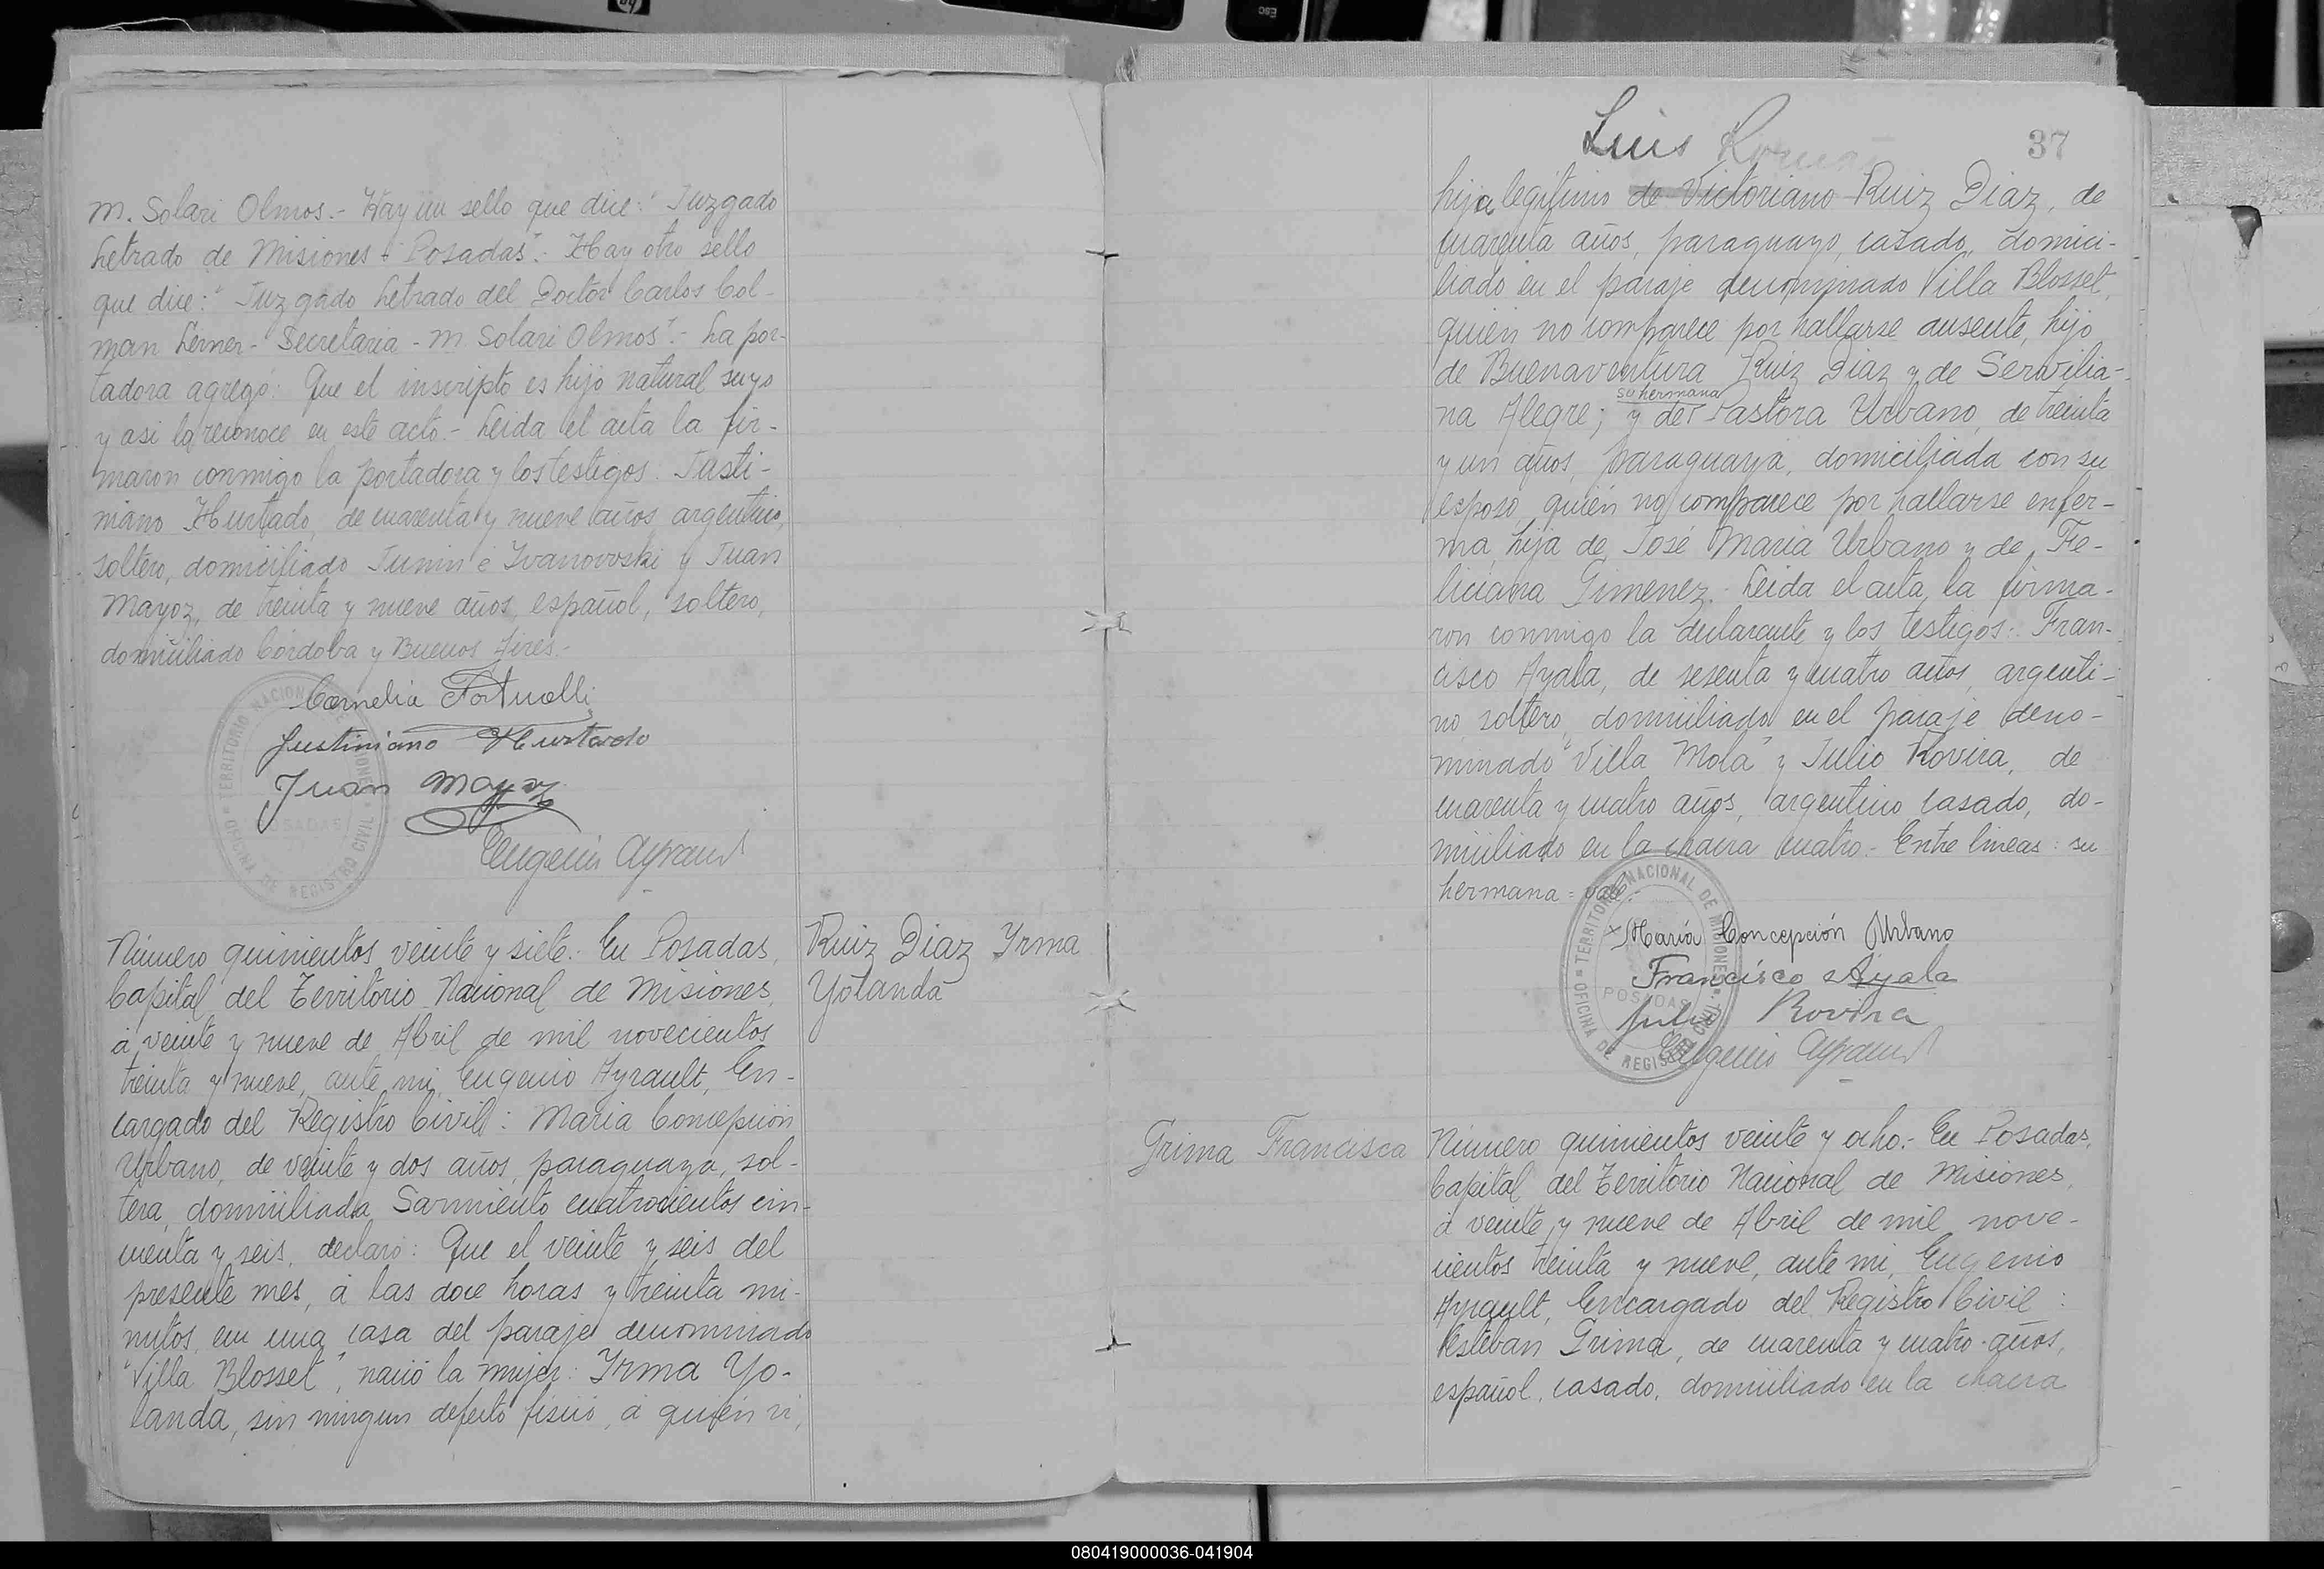 M. Solari Olmos.- Hay un sello que dice: "Juzgado
Letrado de Misiones - Posadas".- Hay otro sello
que dice: "Juzgado Letrado del Doctor Carlos Col-
man Lerner - Secretaria - M. Solari Olmos".- La por-
tadora agregó: Que el inscripto es hijo natural suyo
y asi lo reconoce en este acto.- Leida el acta la fir-
maron conmigo la portadora y los testigos: Justi-
niano Hurtado, de cuarenta y nueve años, argentino,
soltero, domiciliado Junin é Ivanovoski y Juan
Mayoz, de treinta y nueve años, español, soltero,
domiciliado Córdoba y Buenos Aires.-
Justiniano Hurtado
Juan Mayoz
Eugenio Ayrault
TERRITORIO NACIONAL DE MISIONES
POSADAS
OFICINA DE REGISTRO CIVIL
Número quinientos veinte y siete.- En Posadas,
Capital del Territorio Nacional de Misiones,
á veinte y nueve de Abril de mil novecientos
treinta y nueve, ante mi, Eugenio Ayrault, En-
cargado del Registro Civil: Maria Concepción
Urbano, de veinte y dos años, paraguaya, sol-
tera, domiciliada Sarmiento cuatrocientos cin-
cuenta y seis, declaró: Que el veinte y seis del
presente mes, á las doce horas y treinta mi-
nutos, en una casa del paraje denominado
"Villa Blosset", nació la mujer: Yrma Yo-
landa, sin ningun defecto fisico, á quien vi,
Ruiz Diaz Yrma
Yolanda
37
Luis
hija legitimo de Victoriano Ruiz Diaz, de
cuarenta años, paraguayo, casado, domici-
liado en el paraje denominado Villa Blosset,
quien no comparece por hallarse ausente, hijo
de Buenaventura Ruiz Diaz y de Servilia-
su hermana
na Alegre; y de Pastora Urbano, de treinta
y un años, paraguaya, domiciliada con su
esposo, quién no comparece por hallarse enfer-
ma, hija de José Maria Urbano y de Fe-
liciana Gimenez.- Leida el acta, la firma-
ron conmigo la declarante y los testigos: Fran-
cisco Ayala, de sesenta y cuatro años, argenti-
no, soltero, domiciliado en el paraje deno-
minado "Villa Mola" y Julio Rovira, de
cuarenta y cuatro años, argentino casado, do-
miciliado en la chacra cuatro.- Entre lineas: su
hermana = vale.-
María Concepción Urbano
Francisco Ayala
Julio Rovira
Eugenio Ayrault
TERRITORIO NACIONAL DE MISIONES
POSADAS
OFICINA DE REGISTRO CIVIL
Grima Francisca
Número quinientos veinte y ocho.- En Posadas,
Capital del Territorio Nacional de Misiones,
á veinte y nueve de Abril de mil nove-
cientos treinta y nueve, ante mi, Eugenio
Ayrault, Encargado del Registro Civil:
Esteban Grima, de cuarenta y cuatro años,
español, casado, domiciliado en la chacra
080419000036-041904